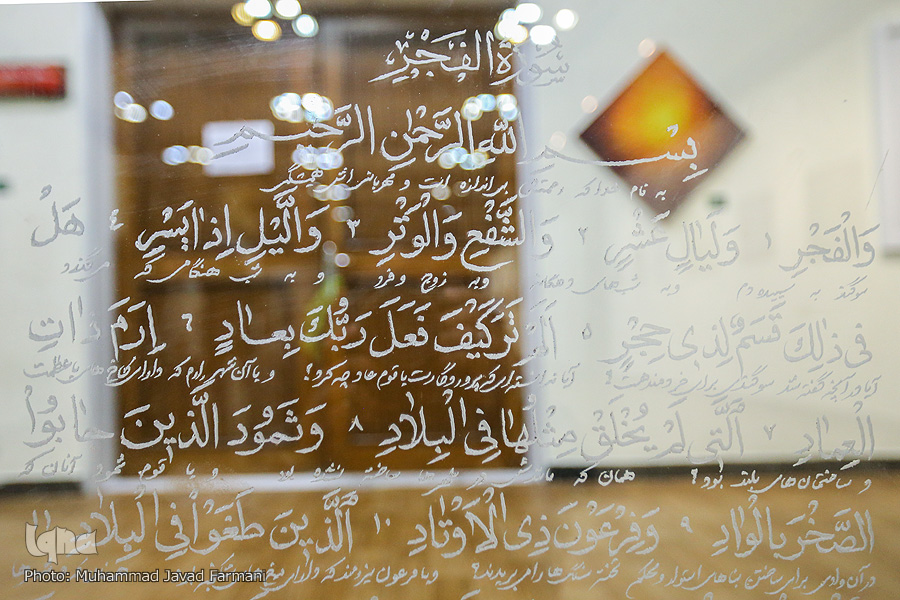 سُورَةُ الفَجْرِ
بِسْمِ اللهِ الرَّحْمٰنِ الرَّحِیمِ
به نام خدا که رحمتش بی اندازه است و مهربانی اش همیشگی
وَالْفَجْرِ ۱ وَلَيَالٍ عَشْرٍ ۲ وَالشَّفْعِ وَالْوَتْرِ ۳ وَاللَّيْلِ إِذَا يَسْرِ ۴ هَلْ
سوگند به سپیده دم وبه شب های دهگانه وبه زوج وفرد و به شب هنگامی که می‌گذرد
فِي ذٰلِكَ قَسَمٌ لِذِي حِجْرٍ ۵ أَلَمْ تَرَ كَيْفَ فَعَلَ رَبُّكَ بِعَادٍ ۶ إِرَمَ ذَاتِ
آیا در آنچه گفته شد سوگندی برای خردمند هست؟ آیا ندانسته‌ای که پروردگارت با قوم عاد چه کرد؟ و با آن شهر ارم که دارای کاخ های با عظمت
الْعِمَادِ ۷ الَّتِي لَمْ يُخْلَقْ مِثْلُهَا فِي الْبِلَادِ ۸ وَثَمُودَ الَّذِينَ جَابُوا
و ساختمان های بلند بود؟ همان که مانندش در شهرها ساخته نشده بود و با قوم ثمود آنان که
الصَّخْرَ بِالْوَادِ ۹ وَفِرْعَوْنَ ذِي الْأَوْتَادِ ۱۰ الَّذِينَ طَغَوْا فِي الْبِلَادِ
در آن وادی برای ساختن بناهای استوار و محکم تخته سنگ ها را می بریدند؟ وبا فرعون نیرومند که دارای
iqna
Photo: Muhammad Javad Farmani